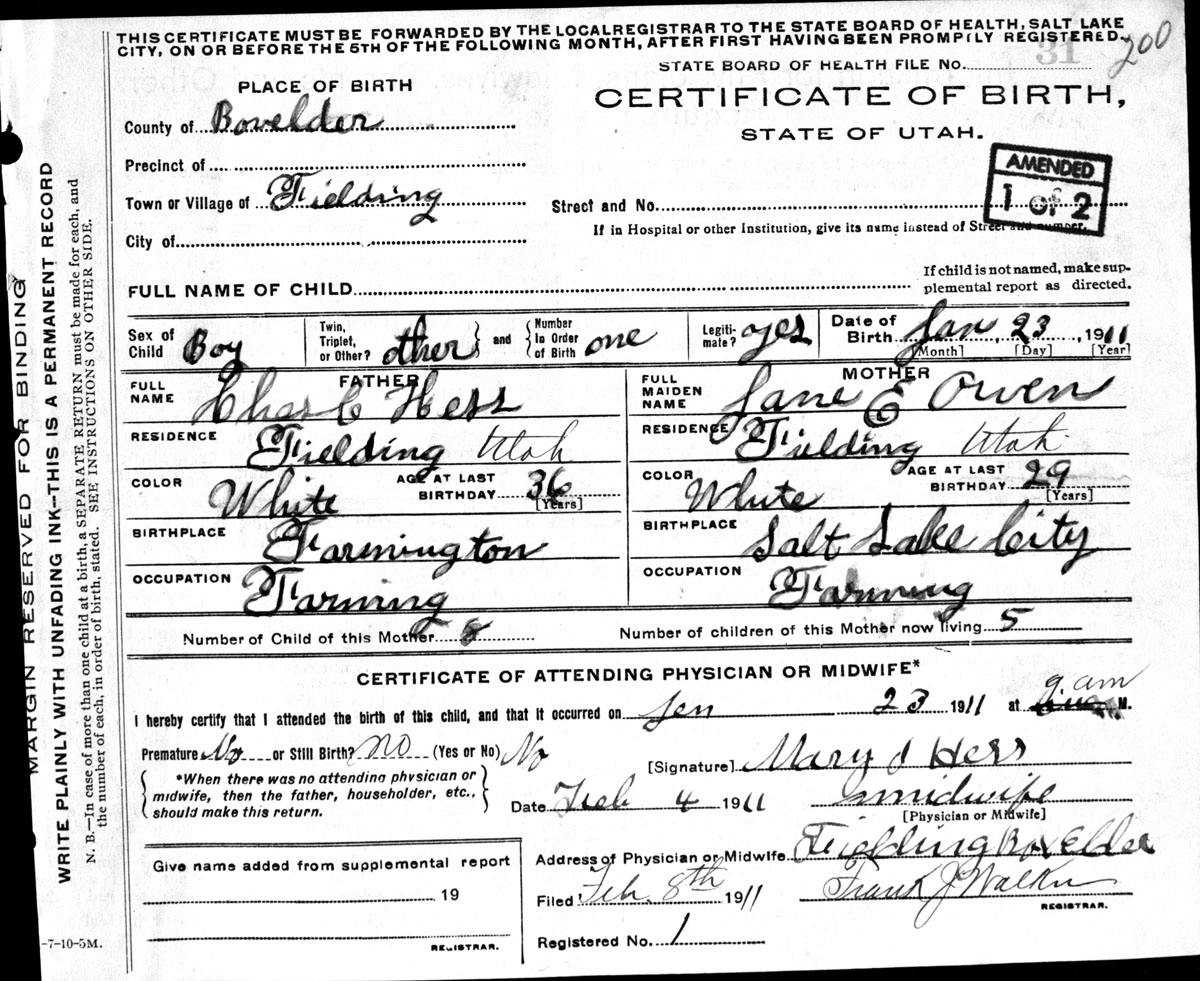 THIS CERTIFICATE MUST BE FORWARDED BY THE LOCAL REGISTRAR TO THE STATE BOARD OF HEALTH, SALT LAKE
CITY, ON OR BEFORE THE 5TH OF THE FOLLOWING MONTH, AFTER FIRST HAVING BEEN PROMPTLY REGISTERED.
200
STATE BOARD OF HEALTH FILE NO. 31
PLACE OF BIRTH
CERTIFICATE OF BIRTH,
STATE OF UTAH.
County of Bowelder
Precinct of
AMENDED
1 OF 2
Town or Village of Fielding
Street and No.
If in Hospital or other Institution, give its name instead of Street and number.
City of
FULL NAME OF CHILD
If child is not named, make sup-
plemental report as directed.
Sex of Child Boy
Twin, Triplet, or Other? other and Number In Order of Birth one
Legiti-mate? yes
Date of Birth Jan, 23, 1911
[Month] [Day] [Year]
FATHER
FULL NAME Chas C Hess
RESIDENCE Fielding Utah
COLOR White AGE AT LAST BIRTHDAY 36
[Years]
BIRTHPLACE Farmington
OCCUPATION Farming
MOTHER
FULL MAIDEN NAME Jane E Owen
RESIDENCE Fielding Utah
COLOR White AGE AT LAST BIRTHDAY 29
[Years]
BIRTHPLACE Salt Lake City
OCCUPATION Farming
Number of Child of this Mother
Number of children of this Mother now living 5
CERTIFICATE OF ATTENDING PHYSICIAN OR MIDWIFE*
I hereby certify that I attended the birth of this child, and that it occurred on Jen 23 1911 at 9. am M.
Premature No or Still Birth? no (Yes or No) No
[Signature] Mary J Hess
*When there was no attending physician or
midwife, then the father, householder, etc.,
should make this return.
Date Feb 4 1911
midwife
[Physician or Midwife]
Give name added from supplemental report
19
REGISTRAR.
Address of Physician or Midwife Fielding Box Elder
Filed Feb. 8th 1911 Frank J Walker
REGISTRAR.
Registered No. 1
-7-10-5M.
MARGIN RESERVED FOR BINDING
WRITE PLAINLY WITH UNFADING INK—THIS IS A PERMANENT RECORD
N. B.—In case of more than one child at a birth, a SEPARATE RETURN must be made for each, and
the number of each, in order of birth, stated. SEE INSTRUCTIONS ON OTHER SIDE.